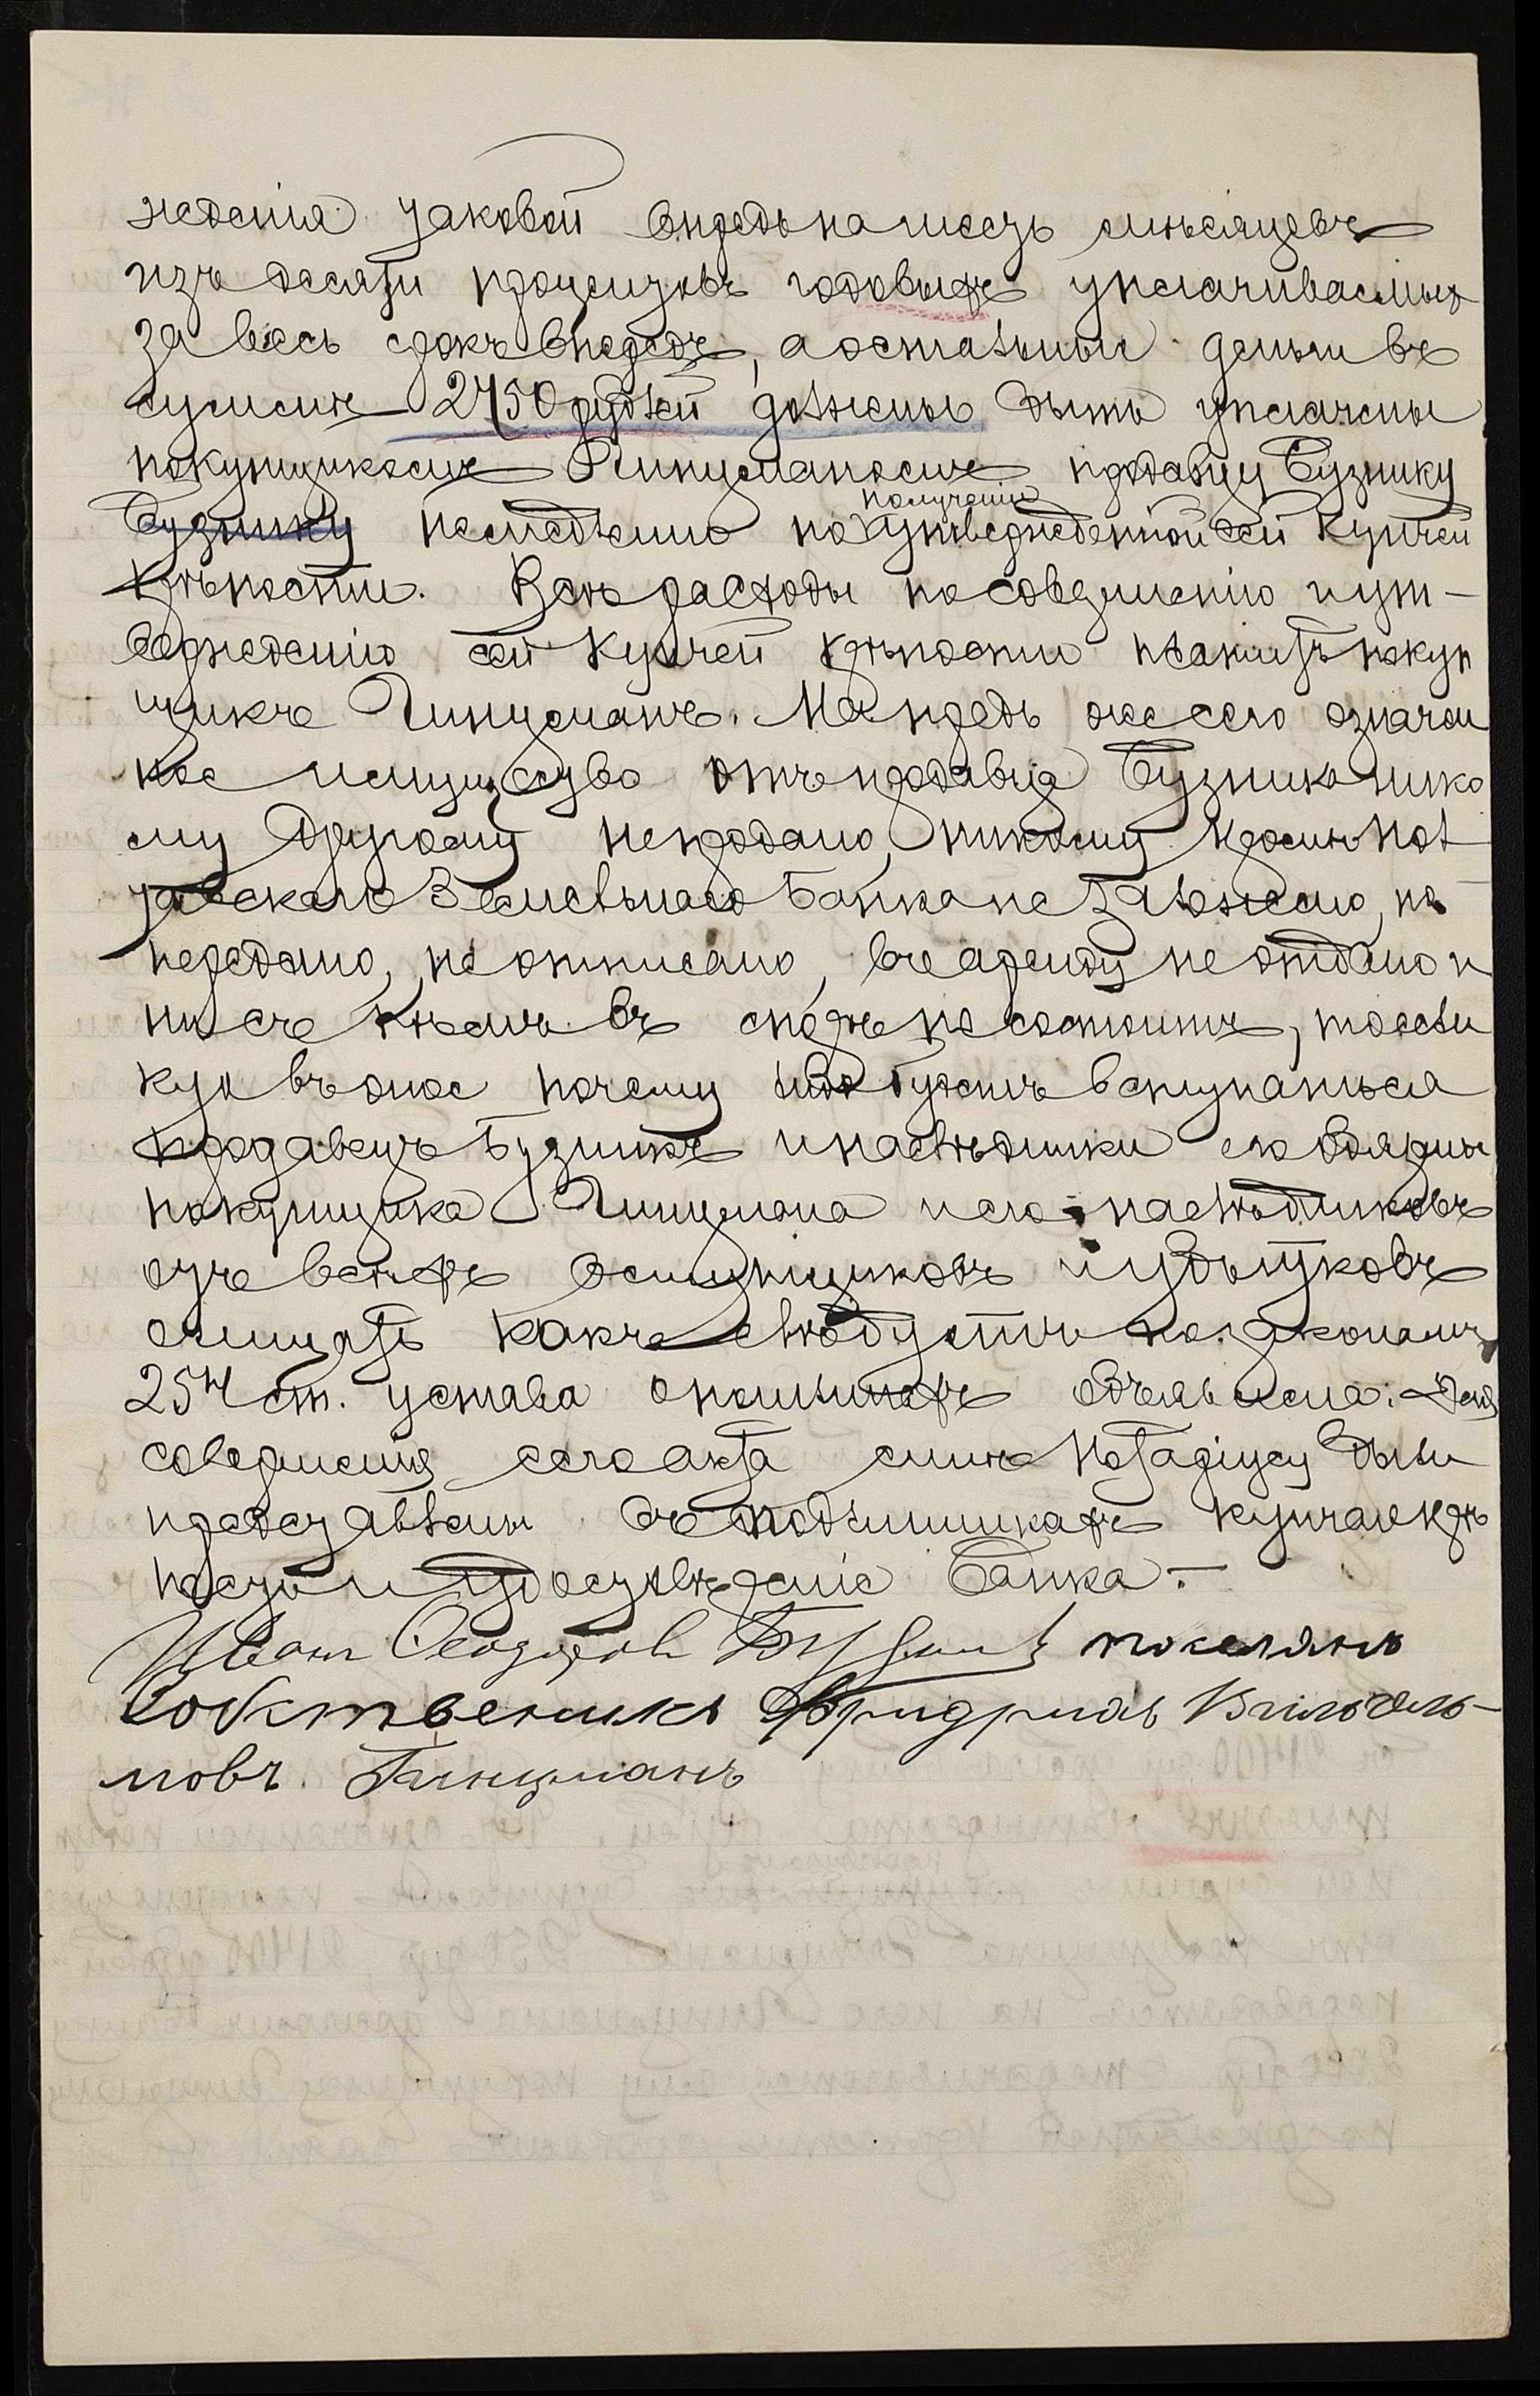 жденія таковой впредь на шесть мѣсяцевъ
изъ десяти процентовъ годовыхъ уплачиваемыхъ
за весь срокъ впередъ, а остальныи деньги въ
суммѣ 2750 рублей должны быть уплачены
покупщикомъ Гинцманомъ продавцу Бузнику
Бузнику немедленно по полученіи утвержденной сей купчей
крѣпости. Всѣ расходы по совершенію и ут-
вержденію сей купчей крѣпости платитъ покуп
щикъ Гинцманъ. Напредь же сего означен
ное имущество отъ продавца Бузника нико
му другому непродано, никому кромѣ Пол
тавскаго Земельнаго Банка не заложено, не
передано, не отписано, въ аренду не отдано и
ни съ кѣмъ въ спорѣ не состоитъ, то если
кто въ оное почему либо будетъ вступаться
продавецъ Бузникъ и наслѣдники его должны
покупщика Гинцмана и его наслѣдниковъ
отъ всѣхъ вступщиковъ и убытковъ
очищать какъ слѣдуетъ по законамъ
254 ст. устава о пошлинахъ объявлена. Для
совершенія сего акта мнѣ Нотаріусу были
представлены въ подлинникахъ купчая крѣ
пость и удостовѣреніе Банка.-
Иванъ Феодоровъ Бузникъ поселянъ
Собственикъ Фридрихъ Вильгель-
мовъ Гинцманъ